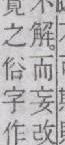 不解。而妄改
覓之俗字作